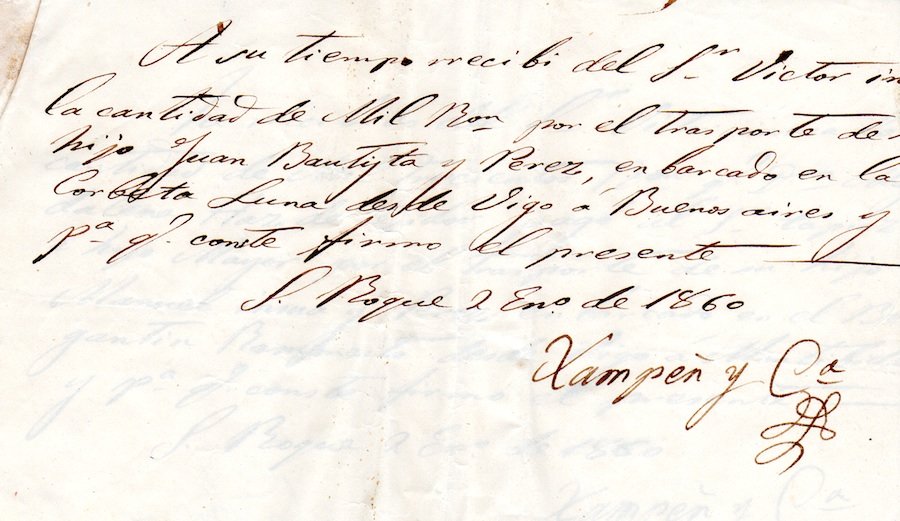 A su tiempo recibi del Sr Victor
la cantidad de Mil Ron por el trasporte de
hijo Juan Bautista y Perez, en barcado en la
Corbeta Luna desde Vigo á Buenos aires y
pa q. conste firmo el presente
S. Roque 2 Eno. de 1860
Xampeñ y Ca